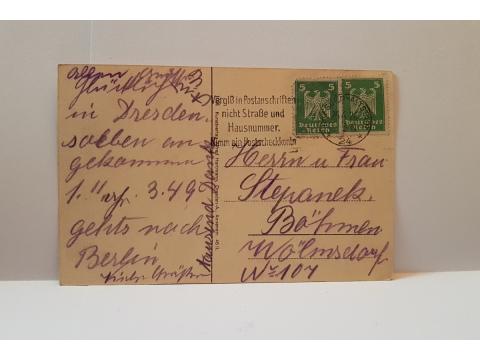 Glücklich
in Dresden
soeben an
gekommen
1.11 3.49
gehts nach
Berlin
Viele Grüße
tausend Dank
Vergiß in Postanschriften
nicht Straße und
Hausnummer.
Nimm ein Postscheckkonto
5 5
Deutsches
Reich
5 5
Deutsches
Reich
24
Herrn u Frau
Stepanek.
Böhmen
Wölmsdorf
No 107